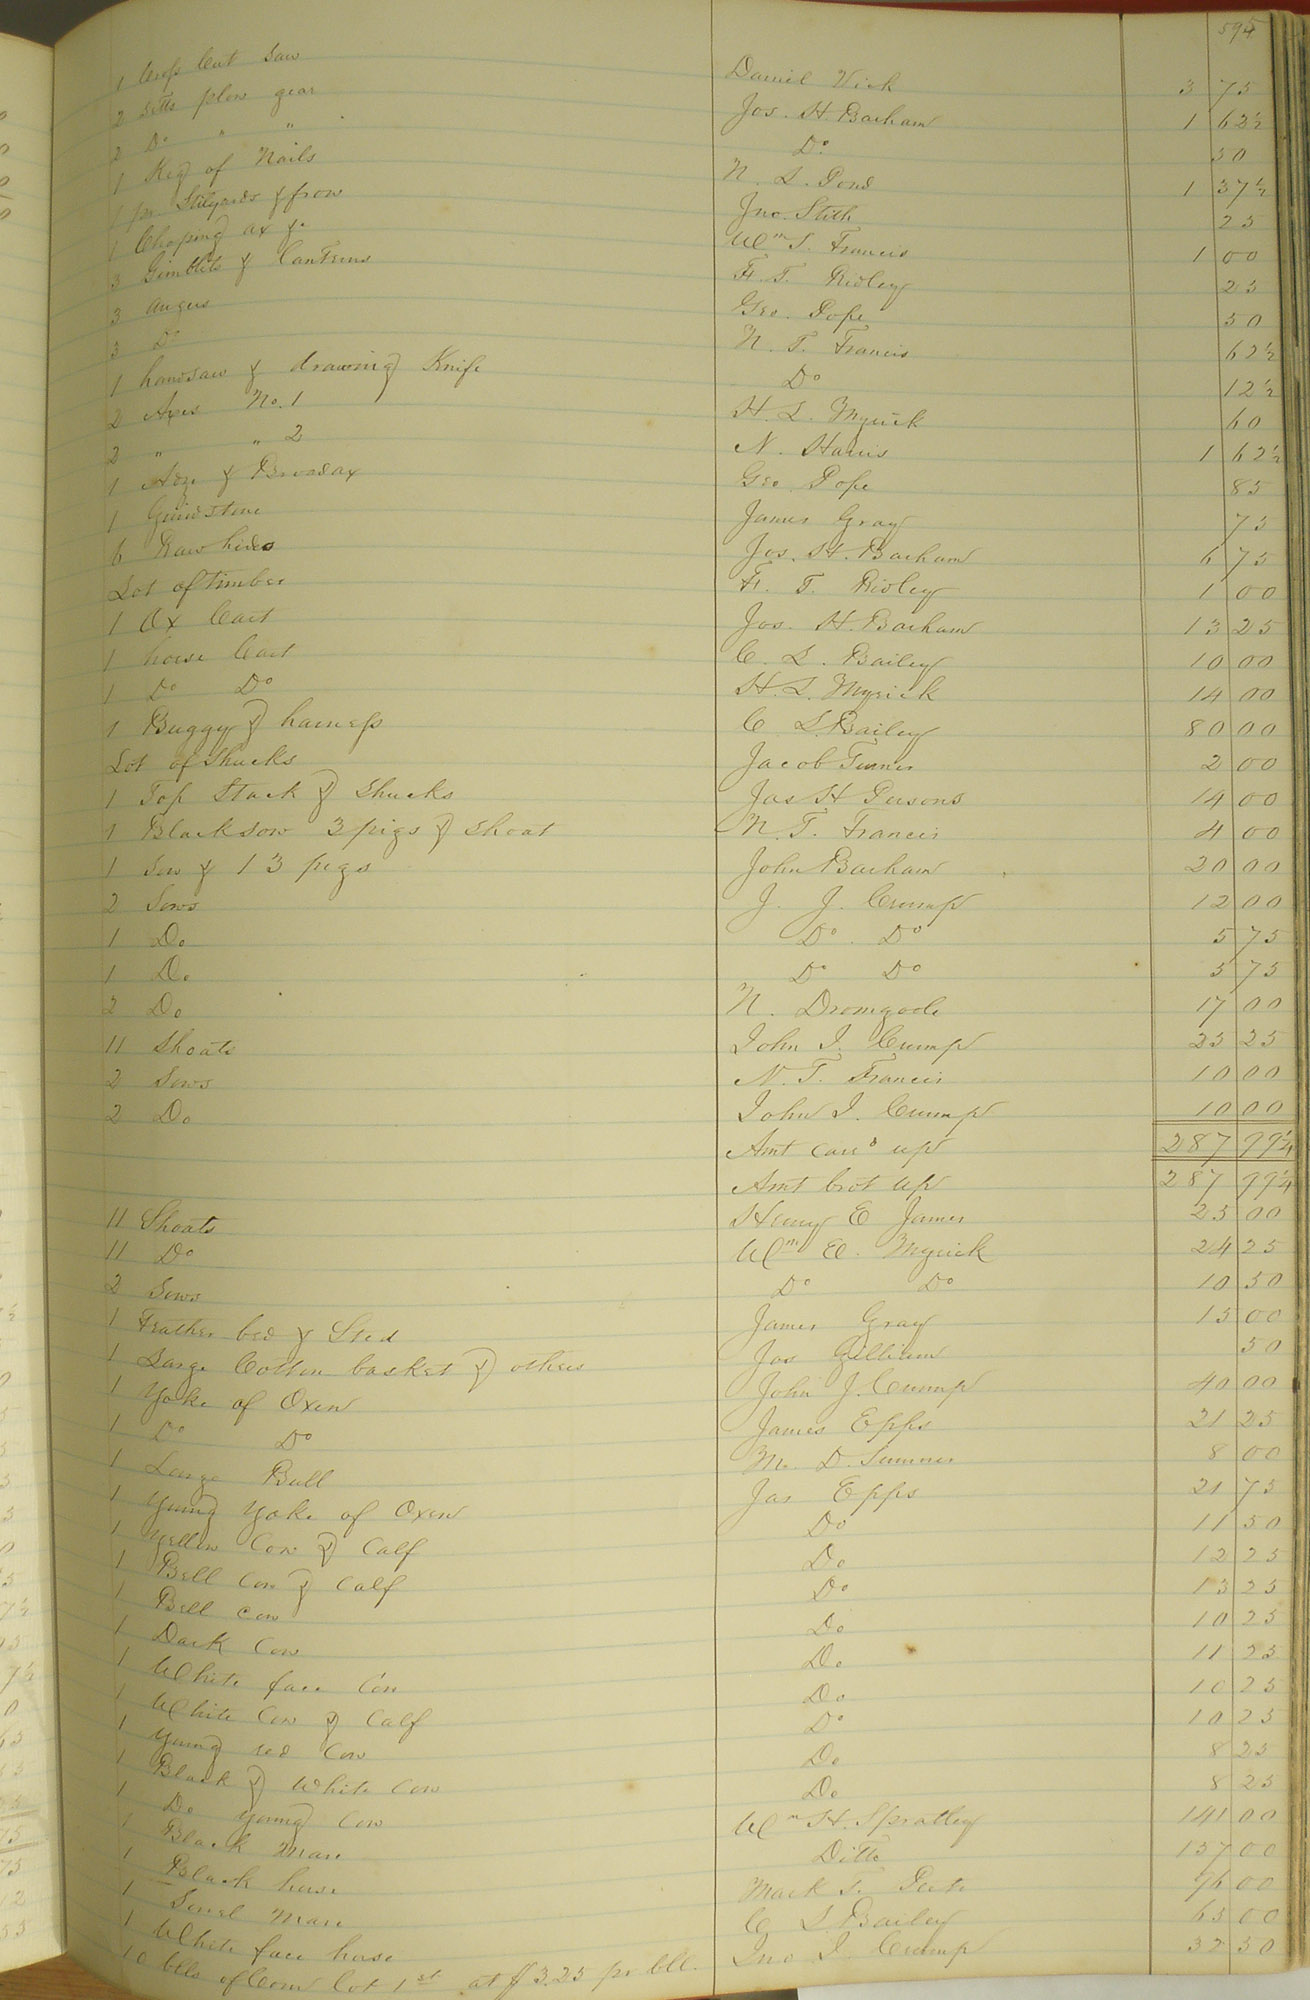 595
1 Cross Cut Saw Daniel Vick 3 75
2 setts plow gear Jos. H. Barham 1 62½
2 Do " " Do 50
1 Keg of Nails N. L. Pond 1 37½
1 pr Stilyards & frow Jno. Stith 25
1 Choping ax &c Wm S. Francis 1 00
3 Gimblits & CanTeens Fr. T. Ridley 25
3 augers Geo. Pope 50
3 Do N. T. Francis 62½
1 handsaw & drawing Knife Do 12½
2 Axes No. 1 H. L. Myrick 60
2 " " 2 N. Harris 1 62½
1 Adze & Broadax Geo. Pope 85
1 Grindstone James Gray 75
6 Raw hides Jos. H. Barham 6 75
Lot of Timber Fr. T. Ridley 1 00
1 Ox Cart Jos. H. Barham 13 25
1 horse Cart C. L. Bailey 10 00
1 Do Do H. L. Myrick 14 00
1 Buggy & harness C L. Bailey 80 00
Lot of Shucks Jacob Turner 2 00
1 Top Stack & shucks Jas H Persons 14 00
1 Black sow 3 pigs & shoat N. T. Francis 4 00
1 Sow & 13 pigs John Barham 20 00
2 Sows J. J. Crump 12 00
1 Do Do Do 5 75
1 Do Do Do 5 75
2 Do N. Dromgoole 17 00
11 Shoats John J. Crump 25 25
2 Sows N. T. Francis 10 00
2 Do John J. Crump 10 00
Amt card up 287 99¼
Amt brot up 287 99¼
11 Shoats Henry E James 25 00
11 Do Wm E. Myrick 24 25
2 Sows Do Do 10 50
1 Feather bed & Sted James Gray 15 00
1 Large Cotton basket & others Jos Gilliam 50
1 Yoke of Oxen John J. Crump 40 00
1 Do Do James Epps 21 25
1 Large Bull M. D. Sumner 8 00
1 Young Yoke of Oxen Jas Epps 21 75
1 Yellow Cow & Calf Do 11 50
1 Bell Cow & Calf Do 12 25
1 Bell Cow Do 13 25
1 Dark Cow Do 10 25
1 White face Cow Do 11 25
1 White Cow & Calf Do 10 25
1 Young red Cow Do 10 25
1 Black & White Cow Do 8 25
1 Do Young Cow Do 8 25
1 Black Mare Wm H. Spratley 141 00
1 Black horse Ditto 157 00
1 Sorrel Mare Mark 96 00
1 White face horse C L. Bailey 65 00
10 bbls of Corn Lot 1st at $3.25 pr bbl. Jno J. Crump 32 50